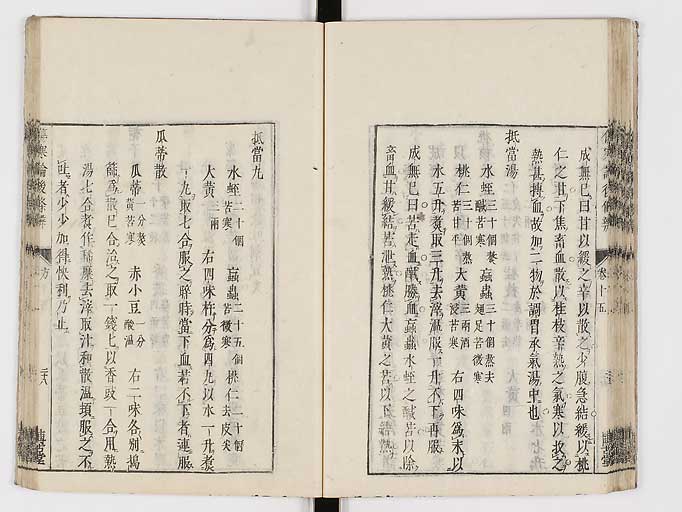 成無已曰甘以緩之辛以散之少腹急結緩以桃
仁之甘下焦畜血散以桂枝辛熱之氣寒以取之
熱甚搏血故加二物於調胃承氣湯中也
抵當湯
水蛭三十個熬鹹苦寒 䖟蟲三十個熬去翅足苦微寒
桃仁三個苦甘平 大黃三兩酒浸苦寒 右四味爲末以
水五升煮取三升去滓溫服一升不下再服
成無已曰苦走血鹹勝血䖟蟲水蛭之鹹苦以除
畜血甘緩結苦泄熱桃仁大黃之苦以下結熱
卷十五
抵當丸
水蛭二十個苦寒 䖟蟲二十五個苦微寒 桃仁二十個去皮尖
大黃三兩 右四味杵分爲四丸以水一升煮
一丸取七合服之晬時當下血若不下者連服
瓜蒂散
瓜蒂一分熬黃苦寒 赤小豆一分酸溫 右二味各別搗
篩爲散已合治之取一錢匕以香豉一合用熱
湯七合煮作稀糜去滓取汁和散溫頓服之不
吐者少少加得快利乃止
方